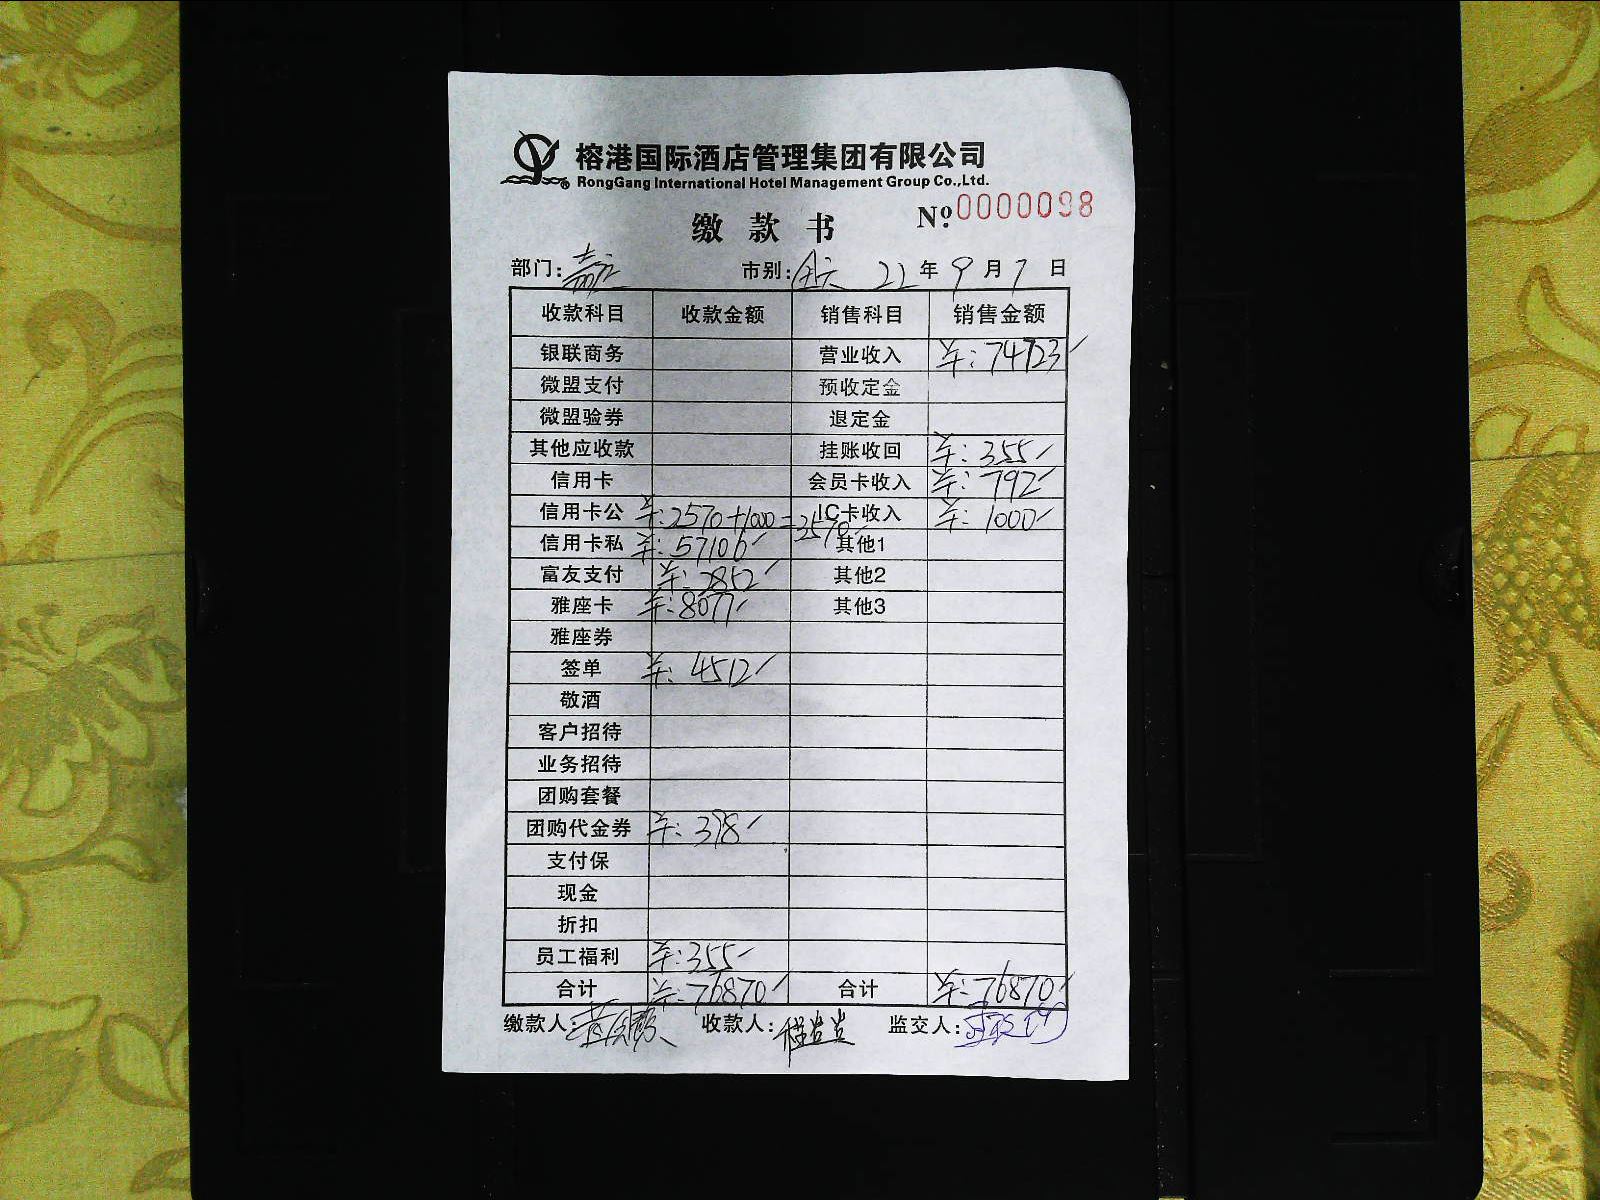 榕港国际酒店管理集团有限公司
RongGang International Hotel Management Group Co.,Ltd.
缴款书 No.0000098
部门: 市别:全天 22年9月7日
收款科目 收款金额 销售科目 销售金额
银联商务 营业收入 ¥:74723
微盟支付 预收定金
微盟验券 退定金
其他应收款 挂账收回 ¥:355
信用卡 会员卡收入 ¥:792
信用卡公 ¥:2570+1000=3570 IC卡收入 ¥:1000
信用卡私 ¥:57106 其他1
富友支付 ¥:2852 其他2
雅座卡 ¥:8077 其他3
雅座券
签单 ¥:4512
敬酒
客户招待
业务招待
团购套餐
团购代金券 ¥:398
支付保
现金
折扣
员工福利 ¥:355
合计 ¥:76870 合计 ¥:76870
缴款人: 收款人: 监交人: